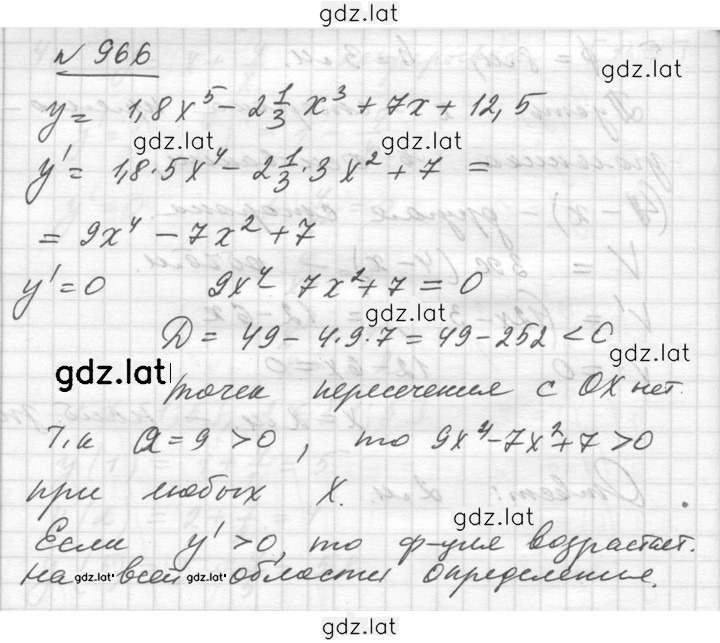 gdz.lat
№ 966
gdz.lat
y = 1,8x⁵ - 2⅓x³ + 7x + 12,5
gdz.lat gdz.lat
y' = 1,8·5x⁴ - 2⅓·3x² + 7 =
= 9x⁴ - 7x² + 7
y' = 0 9x⁴ - 7x² + 7 = 0
gdz.lat
Д = 49 - 4·9·7 = 49 - 252 < 0
gdz.lat
gdz.lat
точек пересечения с OX нет.
Т.к a = 9 > 0, то 9x⁴ - 7x² + 7 > 0
при любых X.
gdz.lat
Если y' > 0, то ф-ция возрастает.
на всей области определение.
gdz.lat gdz.lat gdz.lat
gdz.lat